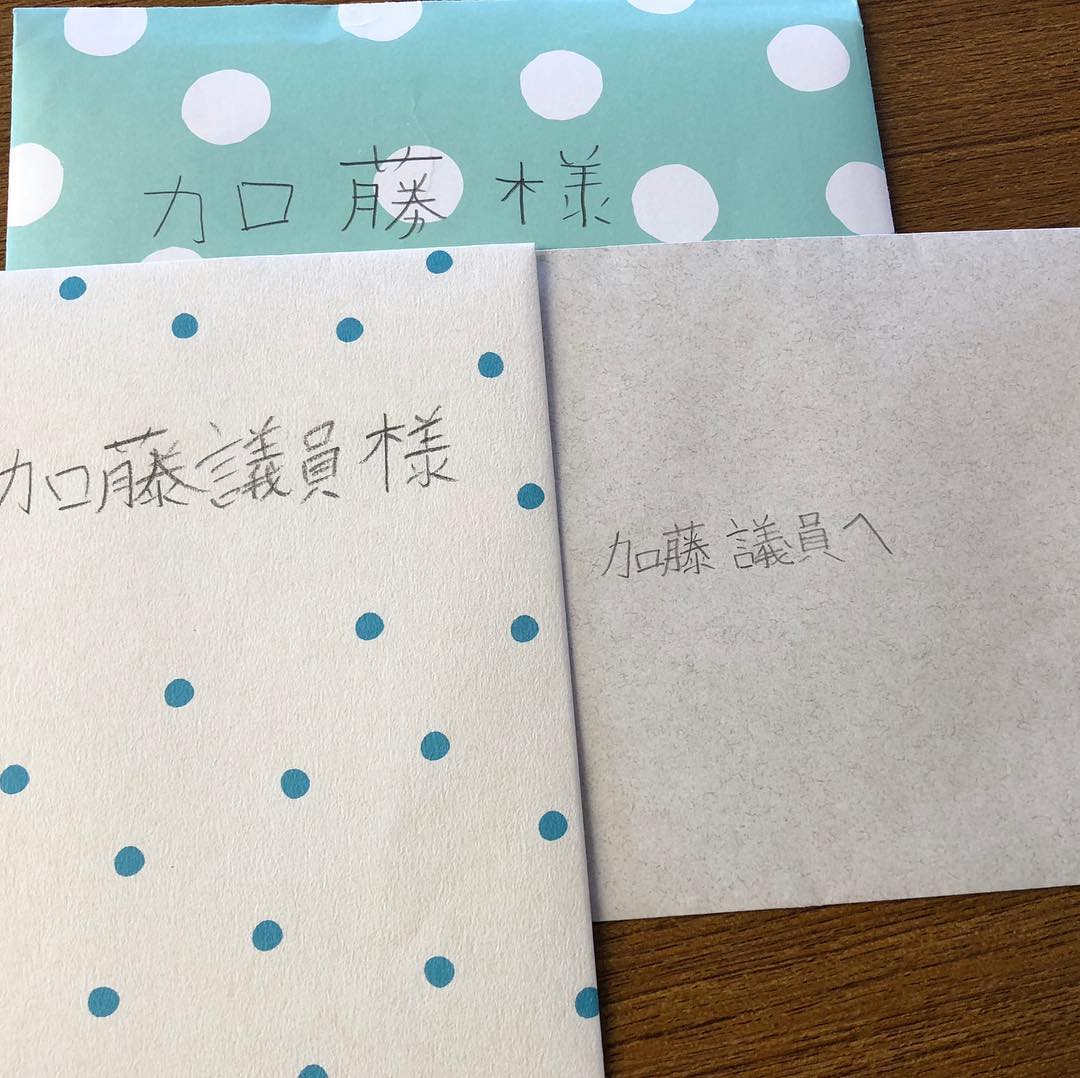 加藤様
加藤議員様
加藤議員へ